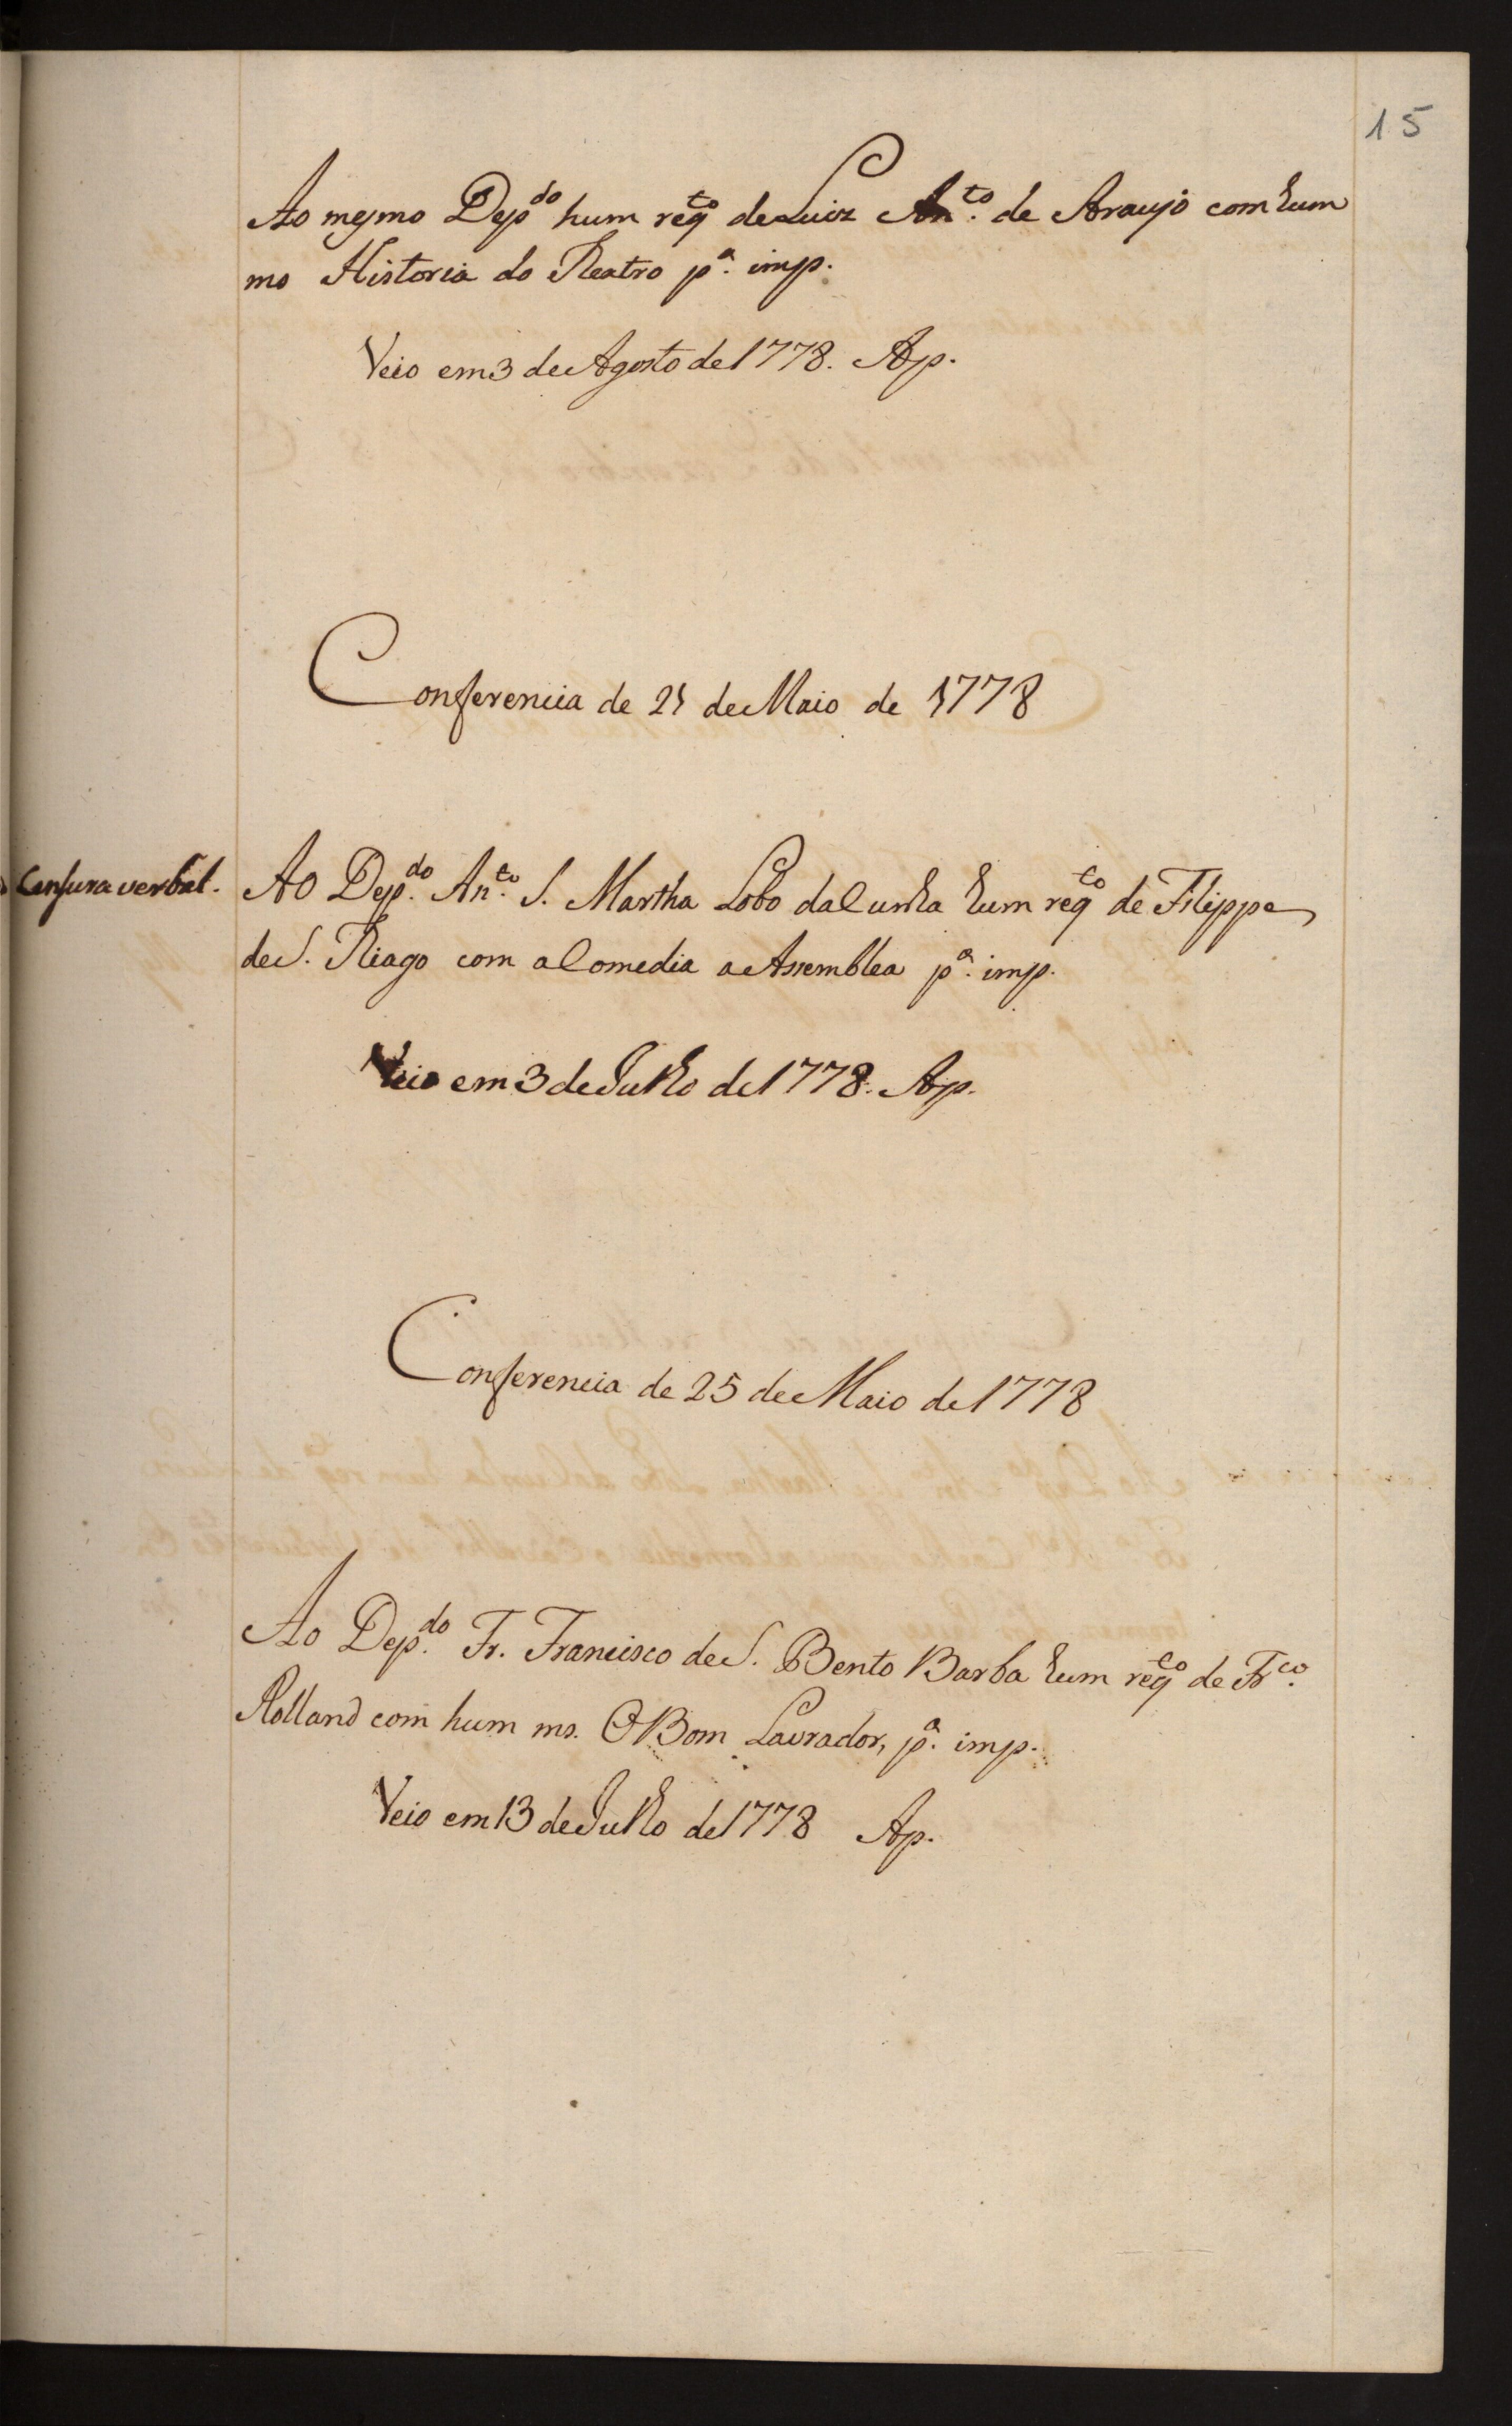 15
Ao mesmo Dep.do hum req.to de Luiz An.to de Araujo com hum
ms Historia do Theatro p.a imp.
Veio em 3 de Agosto de 1778. Ap.
Conferencia de 21 de Maio de 1778
Censura verbal.
Ao Dep.do An.to S. Martha Lobo da Cunha hum req.to de Filippe
de S. Tiago com a Comedia a Assemblea p.a imp.
Veio em 3 de Julho de 1778. Ap.
Conferencia de 25 de Maio de 1778
Ao Dep.do Fr. Francisco de S. Bento Barba hum req.to de Fr.co
Rolland com hum ms. O Bom Lavrador, p.a imp.
Veio em 13 de Julho de 1778 Ap.